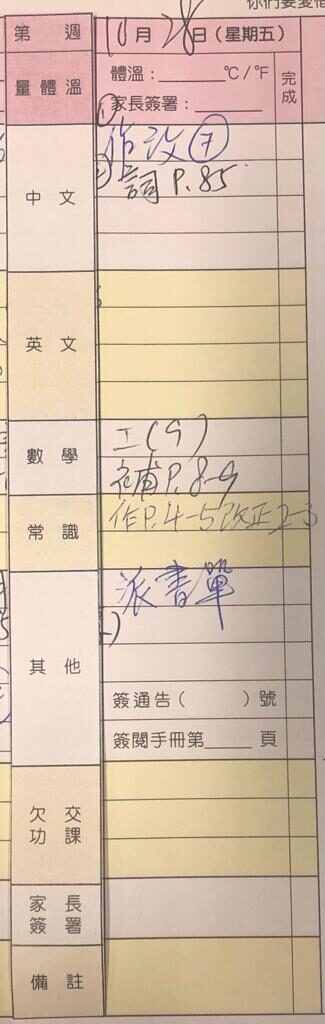 第　週
10月28日（星期五）
量體溫
體溫：______°C/°F
完成
① 家長簽署：______
中文
作改⑦
② 詞 P.85
英文
數學
工(9)
補P.8-9
常識
作P.4-5改正2-3
其他
派書單
簽通告（　　）號
簽閱手冊第____頁
欠交功課
家長簽署
備註